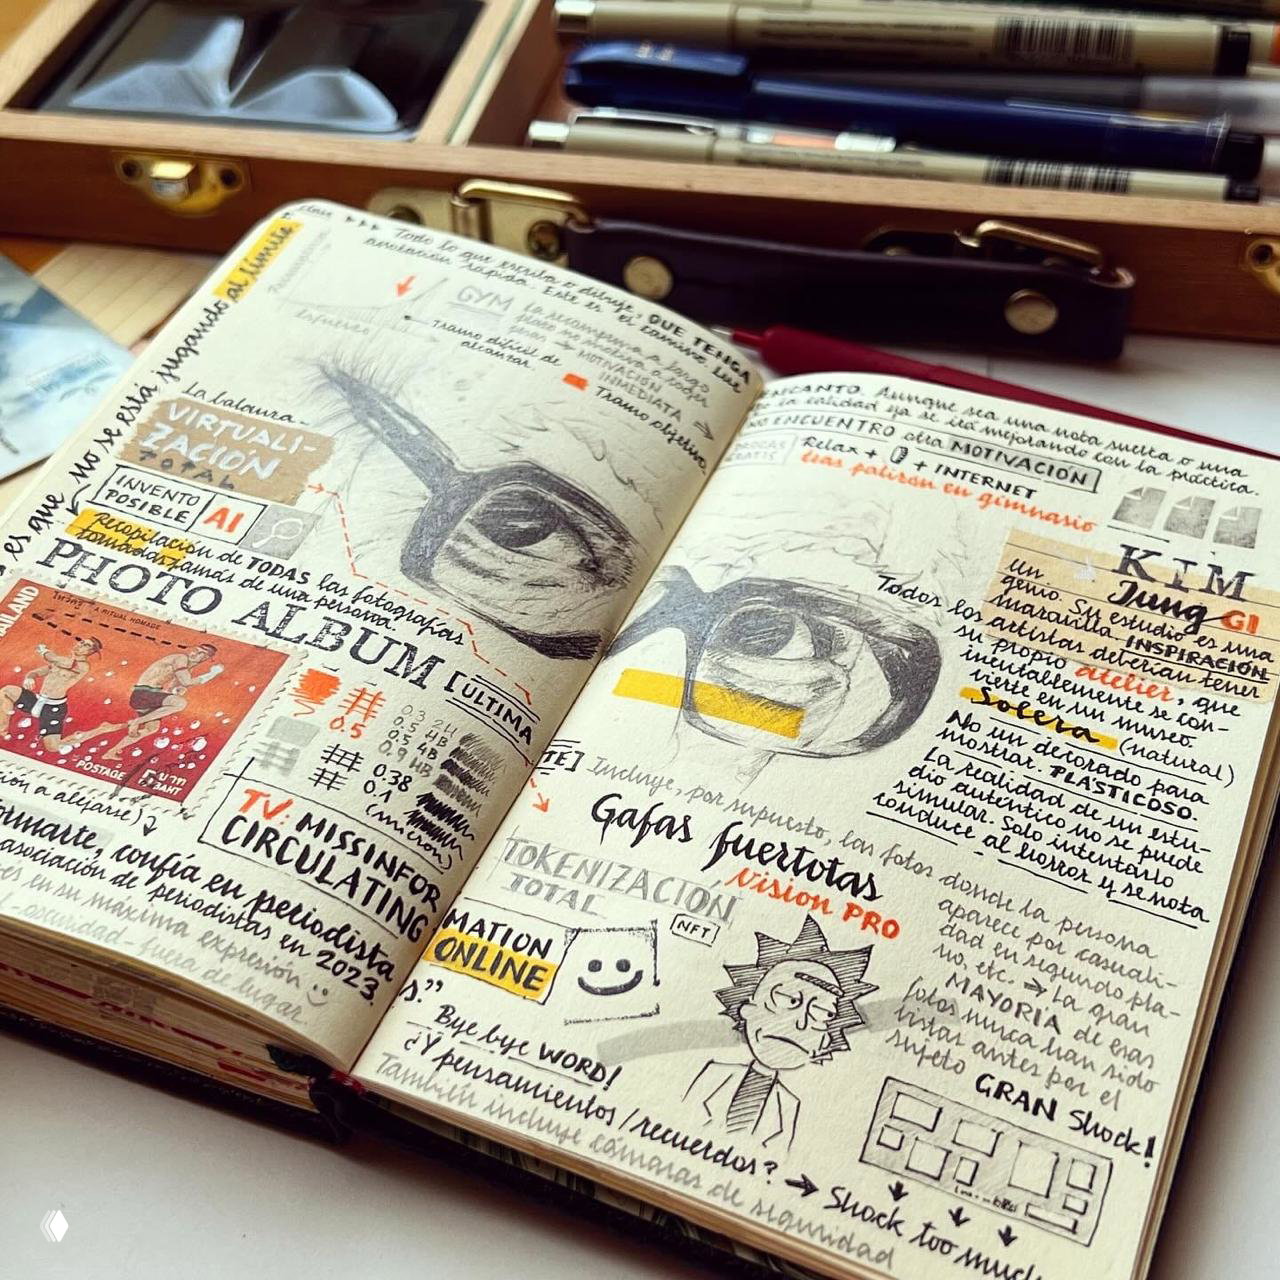 Todo lo que escriba o dibuje, QUE TENGA
anotación rápida. Este es el camino.
no se está jugando al límite
es que
GYM
esfuerzo
Tramo difícil de
alcanzar
MOTIVACIÓN
INMEDIATA
Tramo objetivo.
La baldura
VIRTUALI-
ZACIÓN
TOTAL
INVENTO
POSIBLE
AI
Recopilación de TODAS las fotografías
tomadas jamás de una persona
PHOTO ALBUM
[ÚLTIMA
THAILAND
A RITUAL HOMAGE
POSTAGE 5 บาท
BAHT
0.5
0.3 2H
0.5 4B
0.5 4B
0.9 HB
0.38
0.1
(micron)
TV: MISSINFOR
CIRCULATING
ción a alejarse)
confía en periodista
asociación de periodistas en 2023
en su máxima expresión
oscuridad-fuera de lugar.
ENCANTO. Aunque sea una nota suelta o una
la calidad ya se irá mejorando con la práctica.
ENCUENTRO otra MOTIVACIÓN
Relax + 0 + INTERNET
tras palizón en gimnasio
KIM
Jung GI
un
genio. Su estudio es una
maravilla. INSPIRACIÓN
Todos los artistas deberían tener
su propio atelier, que
inevitablemente se con-
vierte en un museo.
Solera (natural)
No un decorado para
mostrar. PLASTICOSO.
La realidad de un estu-
dio auténtico no se puede
simular. Solo intentarlo
conduce al horror y se nota
TE] Incluye, por supuesto, las fotos donde la persona
aparece por casuali-
dad en segundo pla-
no, etc. → La gran
MAYORÍA de esas
fotos nunca han sido
vistas antes por el
sujeto
Gafas fuertotas
Vision PRO
TOKENIZACIÓN
TOTAL
NFT
MATION
ONLINE
s."
Bye bye WORD!
¿Y pensamientos/recuerdos? → Shock too much
También incluye cámaras de seguridad
GRAN Shock!